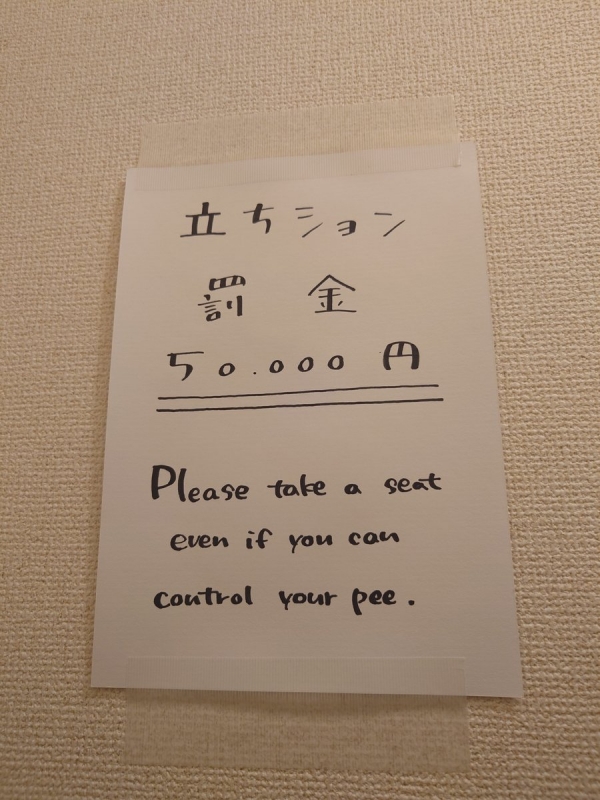 立ちション
罰金
50.000円
Please take a seat
even if you can
control your pee.